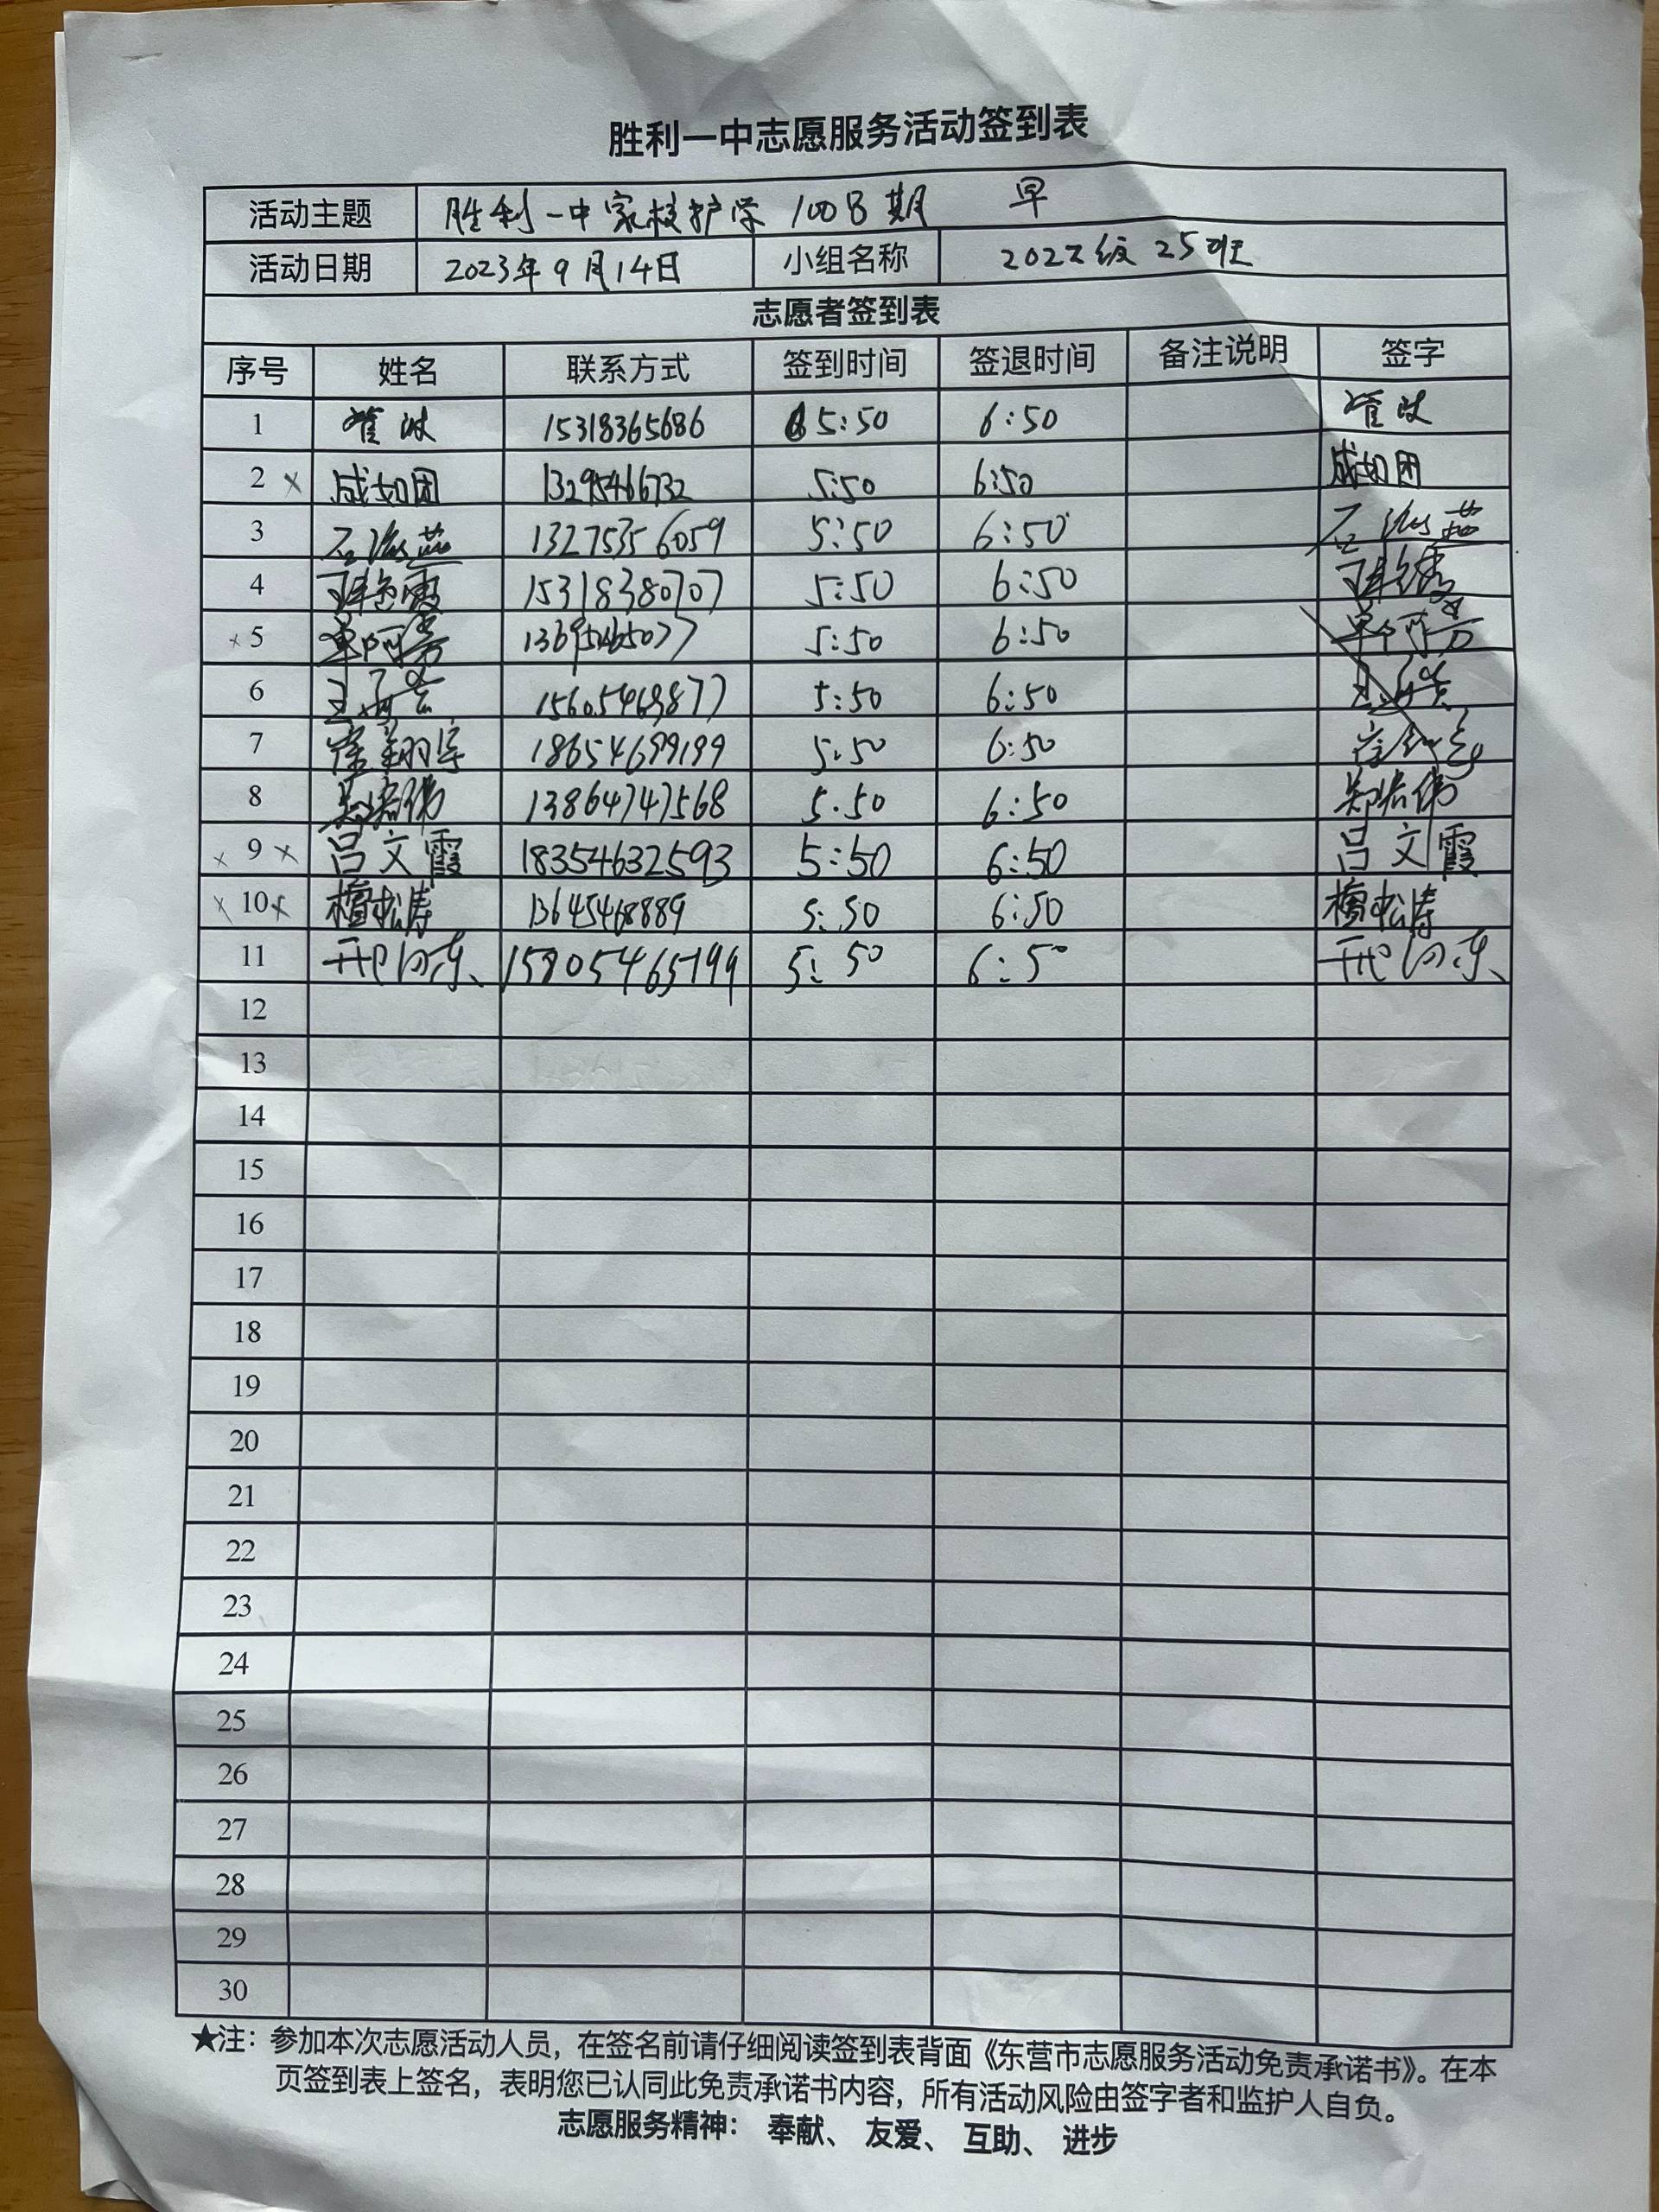 胜利一中志愿服务活动签到表
活动主题 胜利一中家校护学 1008期 早
活动日期 2023年9月14日 小组名称 2022级 25班
志愿者签到表
序号 姓名 联系方式 签到时间 签退时间 备注说明 签字
1 15318365686 5:50 6:50
2 × 成如团 13295466732 5:50 6:50 成如团
3 石海燕 13275356059 5:50 6:50 石海燕
4 15318380707 5:50 6:50
× 5 单阿芳 13695465077 5:50 6:50 单阿芳
6 15605469877 5:50 6:50
7 18654699199 5:50 6:50
8 13864747568 5.50 6:50
× 9 × 吕文霞 18354632593 5:50 6:50 吕文霞
× 10 × 檀松涛 13645468889 5:50 6:50 檀松涛
11 15805465799 5:50 6:50
12
13
14
15
16
17
18
19
20
21
22
23
24
25
26
27
28
29
30
★注：参加本次志愿活动人员，在签名前请仔细阅读签到表背面《东营市志愿服务活动免责承诺书》。在本
页签到表上签名，表明您已认同此免责承诺书内容，所有活动风险由签字者和监护人自负。
志愿服务精神： 奉献、 友爱、 互助、 进步